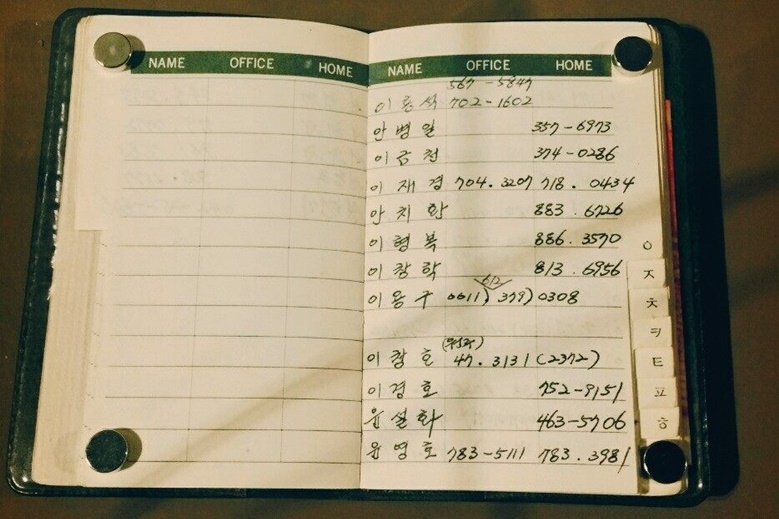 NAME OFFICE HOME
NAME OFFICE HOME
567-5847
이용석 702-1602
안병일 357-6973
이금철 374-0286
이재경 704.3207 718.0434
안치환 883.6726
이형복 886.3570
이창학 813.6956
612
이용구 0011) 379) 0308
이창호 47.3131(2372)
이경호 752-9151
윤설화 463-5706
윤영호 783-5111 783.3981
ㅇ
ㅈ
ㅊ
ㅋ
ㅌ
ㅍ
ㅎ